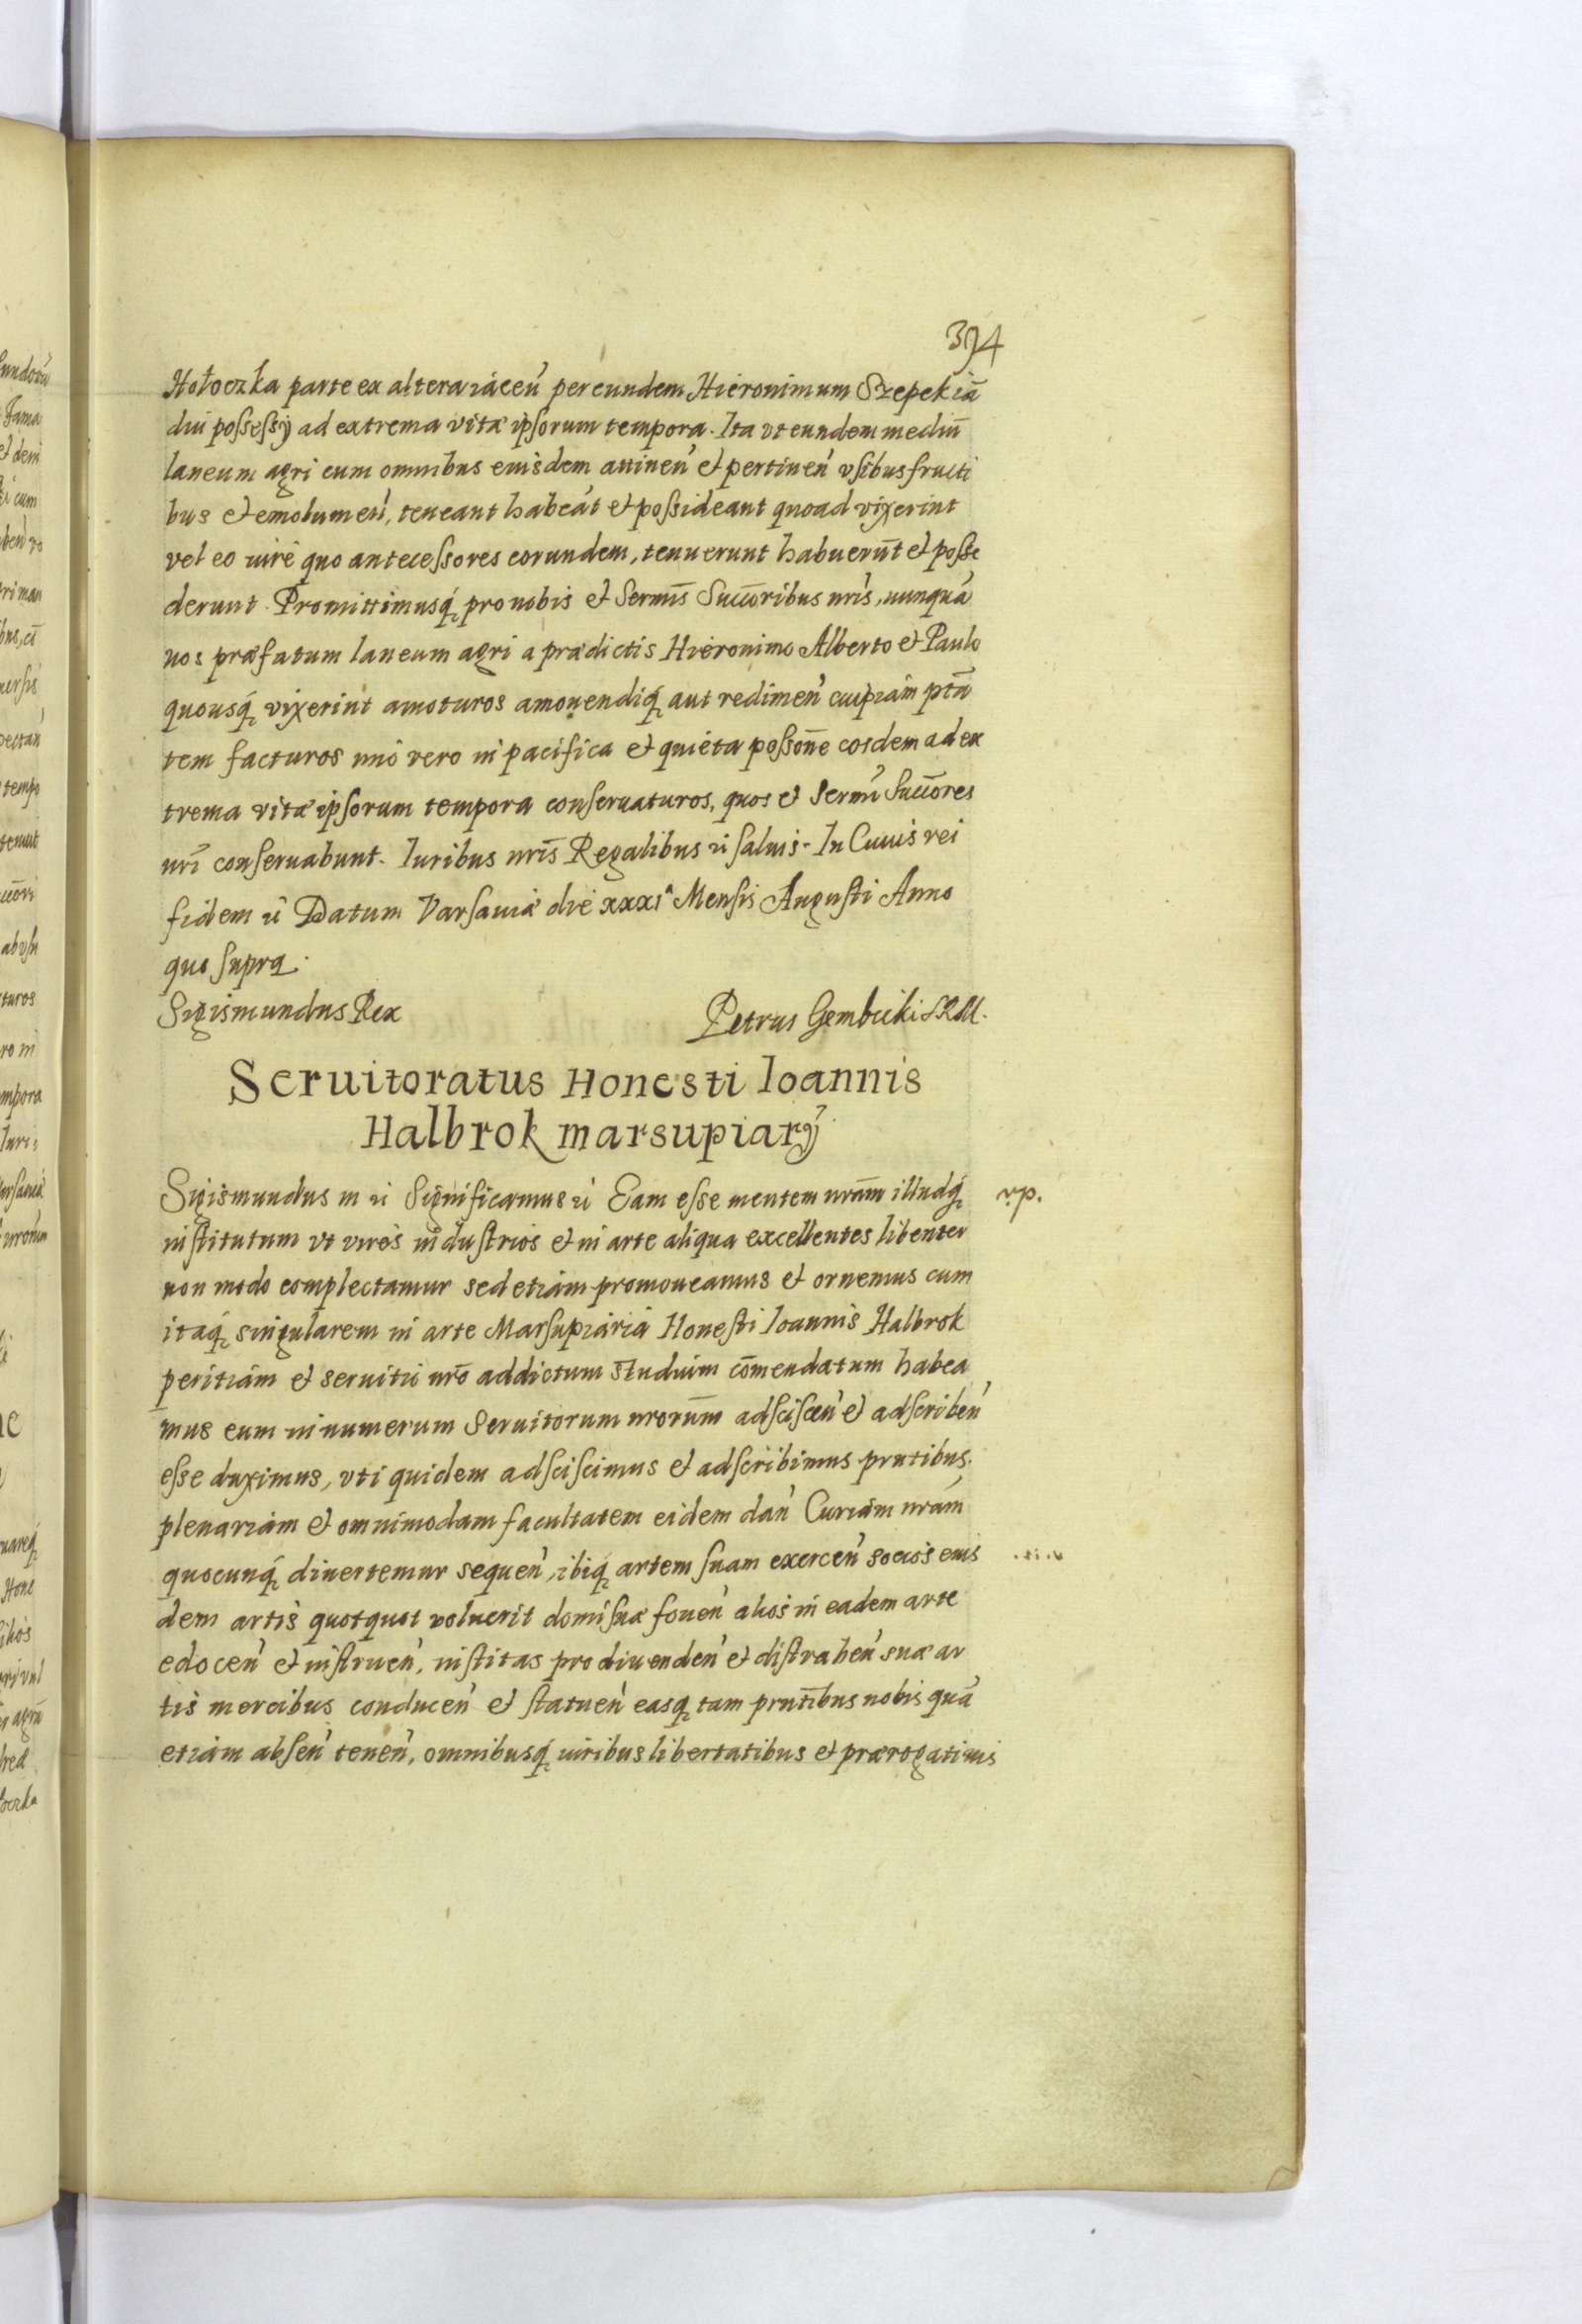 394
Hołoczka parte ex altera iaceń per eundem Hieronimum Szepek iā
diu possessÿ ad extrema vitæ ipsorum tempora. Ita vt eundem mediū
laneum agri cum omnibus eiusdem attineń et pertineń vsibus fructi
bus et emolumeń, teneant habeāt et possideant quoad vixerint
vel eo iure quo antecessores eorundem, tenuerunt habuerūt et posse
derunt. Promittimusq́ pro nobis et Sermīs Succōribus nrīs, nunquā
nos præfatum laneum agri a prædictis Hieronimo Alberto et Paulo
quousq́ vixerint amoturos amouendiq́ aut redimeń cuipiam ptā
tem facturos imo vero in pacifica et quieta possoñe eosdem ad ex
trema vitæ ipsorum tempora conseruaturos, quos et Sermī Succōres
nrī conseruabunt. Iuribus nrīs Regalibus ń saluis. In Cuius rei
fidem ń Datum Varsauiæ die xxxiᵃ Mensis Augusti Anno
quo supra.
Sigismundus Rex Petrus Gembicki SRM.
Seruitoratus Honesti Ioannis
Halbrok marsupiarÿ
Sigismundus m ń Significamus ń Eam esse mentem nrām illudq́
institutum vt viros industrios et in arte aliqua excellentes libenter
non modo complectamur sed etiam promoueamus et ornemus cum
itaq́ singularem in arte Marsupiaria Honesti Ioannis Halbrok
peritiam et seruitii nrō addictum studium cōmendatum habea
mus eum in numerum Seruitorum nrorūm adscisceń et adscribeń
esse duximus, vti quidem adsciscimus et adscribimus prntibus.
plenariam et omnimodam facultatem eidem dań Curiam nrām
quocunq́ diuertemur sequeń, ibiq́ artem suam exerceń socios eius
dem artis quotquot voluerit domi suæ foueń alios in eadem arte
edoceń et instrueń, institas pro diuendeń et distraheń suæ ar
tis mercibus conduceń et statueń easq́ tam prntībus nobis quā
etiam abseń teneń, omnibusq́ iuribus libertatibus et prærogatiuis